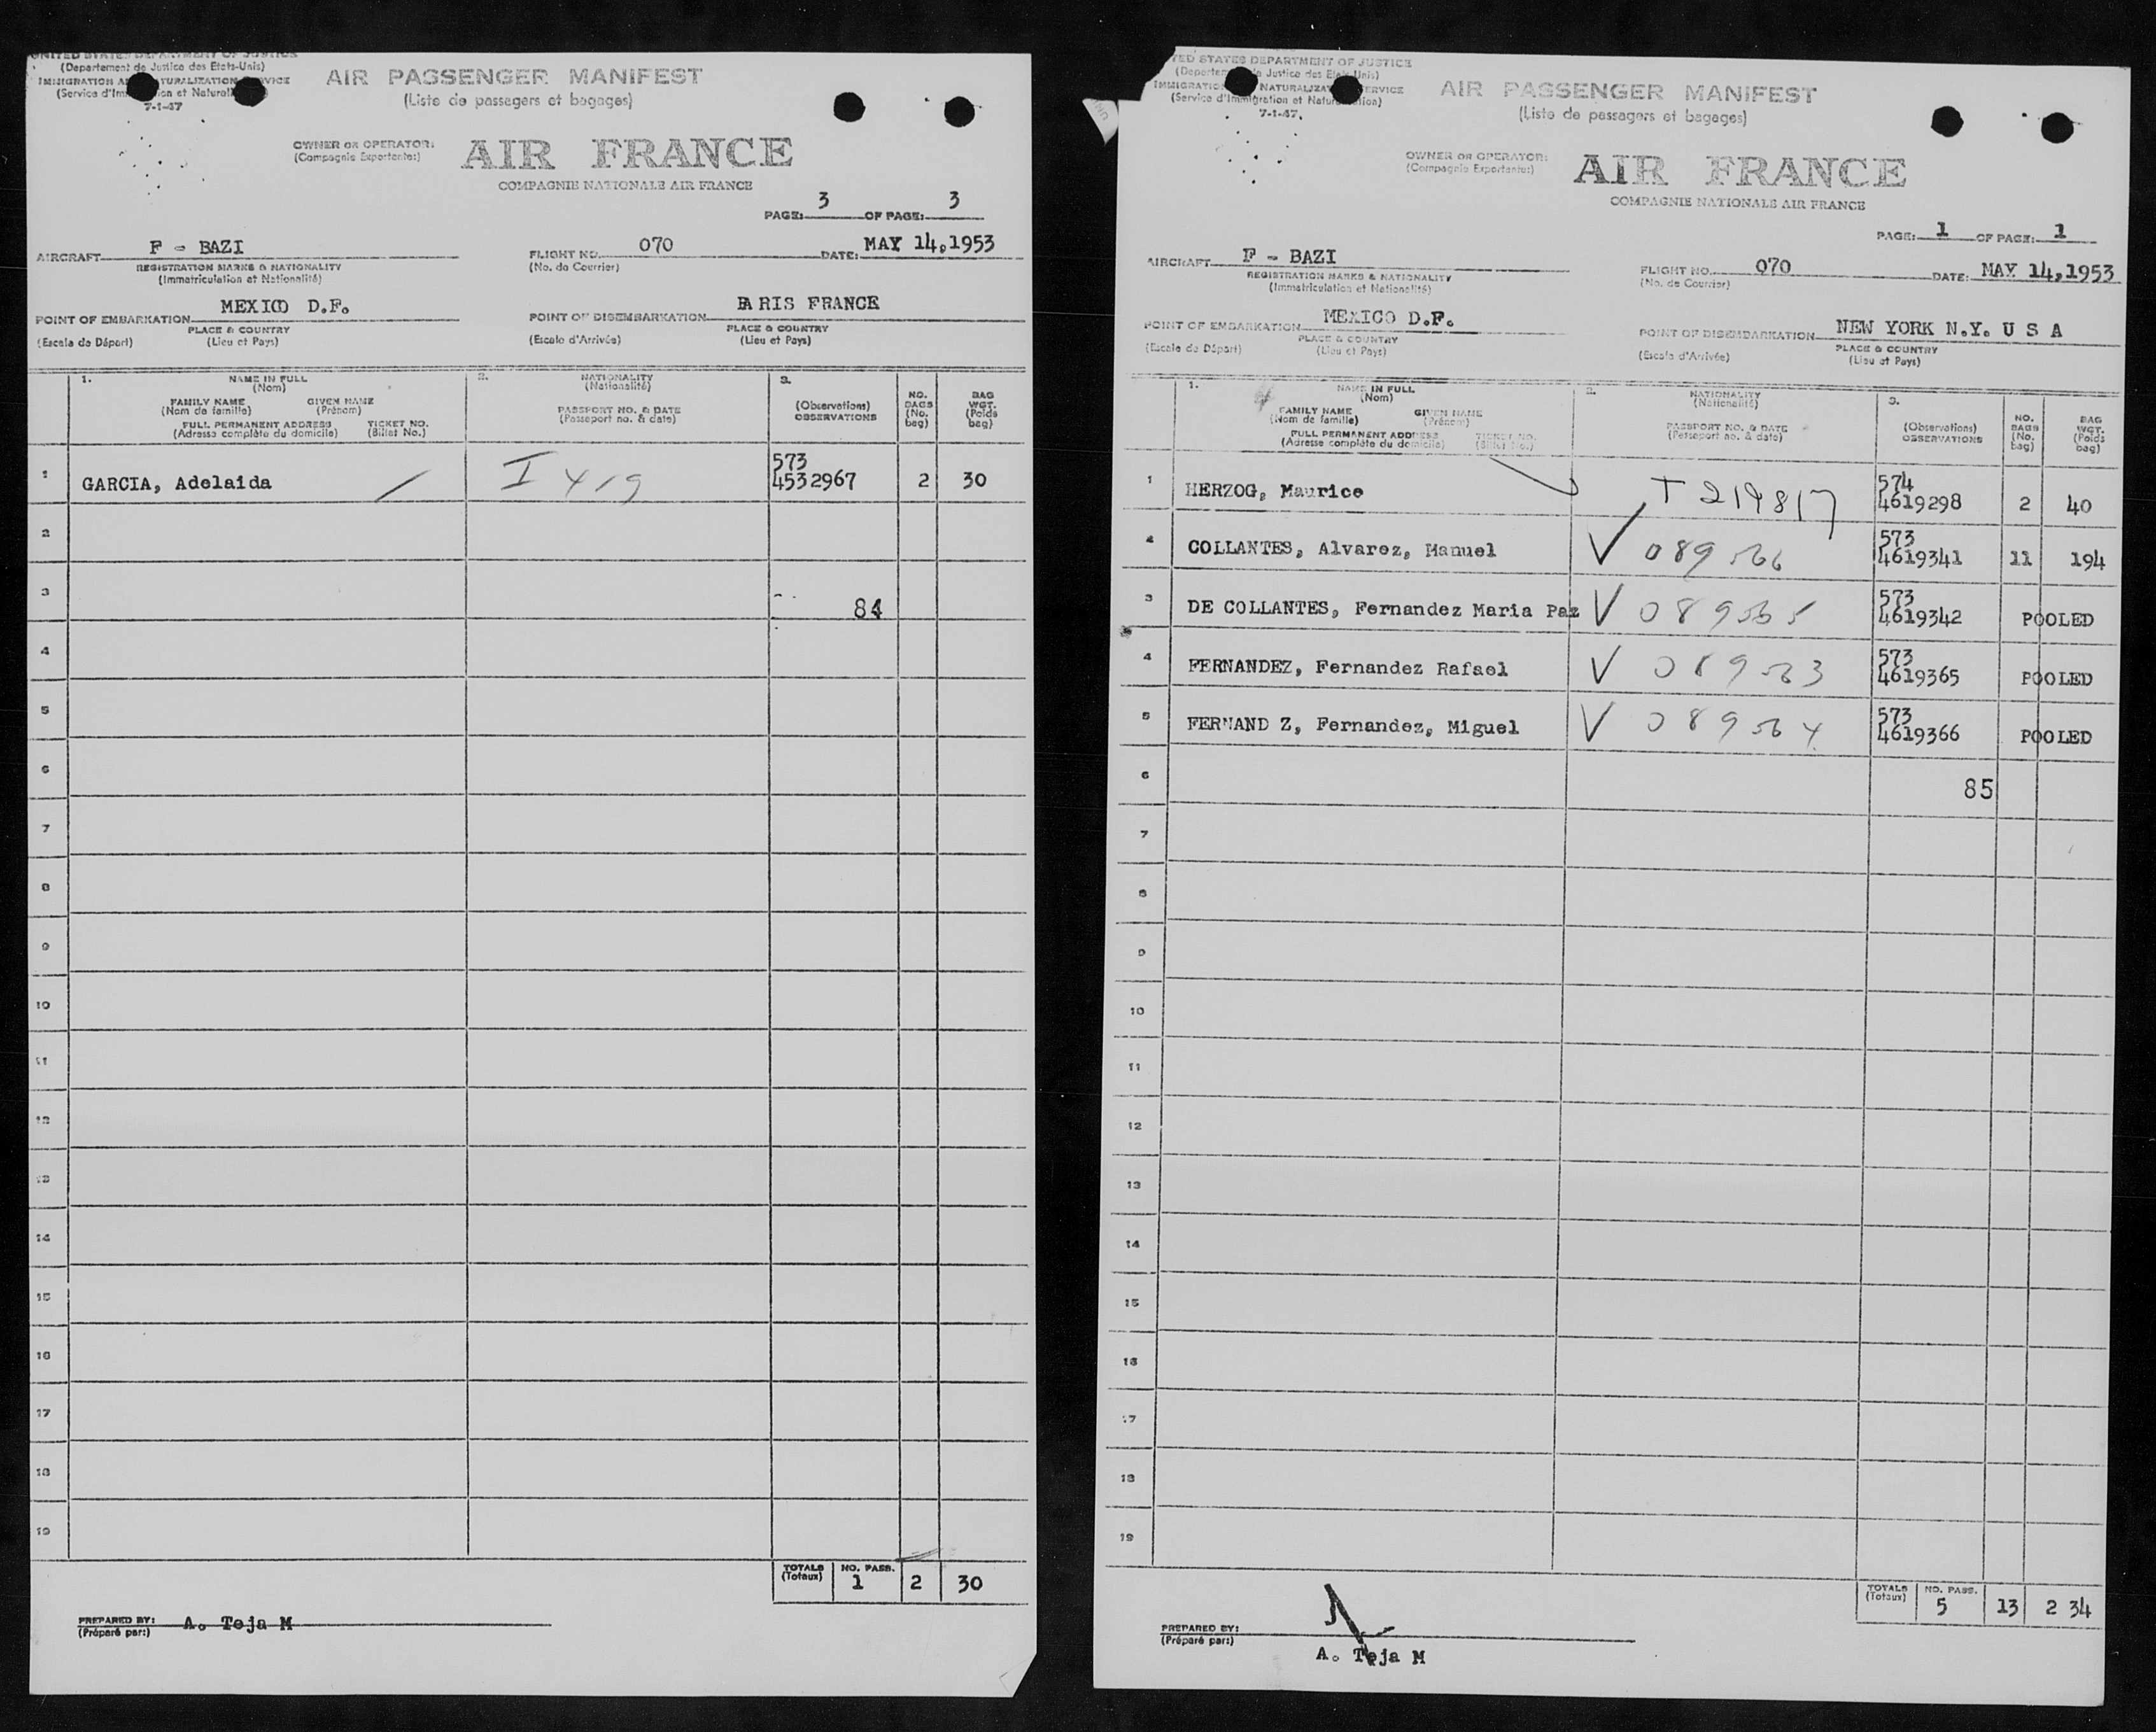 UNITED STATES DEPARTMENT OF JUSTICE
(Departement de Justice des Etats-Unis)
IMMIGRATION NATURALIZATION SERVICE
(Service d'Im et Natural
7-1-47
AIR PASSENGER MANIFEST
(Liste de passagers et bagages)
OWNER OR OPERATOR:
(Compagnie Exportente:)
AIR FRANCE
COMPAGNIE NATIONALE AIR FRANCE
PAGE: 3 OF PAGE: 3
AIRCRAFT F - BAZI
REGISTRATION MARKS & NATIONALITY
(Immatriculation et Nationalité)
FLIGHT NO. 070
(No. de Courrier)
DATE: MAY 14,1953
POINT OF EMBARKATION MEXICO D.F.
PLACE & COUNTRY
(Escale de Départ) (Lieu et Pays)
POINT OF DISEMBARKATION PARIS FRANCE
PLACE & COUNTRY
(Escale d'Arrivée) (Lieu et Pays)
1. NAME IN FULL
(Nom)
FAMILY NAME GIVEN NAME
(Nom de famille) (Prénom)
FULL PERMANENT ADDRESS TICKET NO.
(Adresse complète du domicile) (Billet No.)
2. NATIONALITY
(Nationalité)
PASSPORT NO. & DATE
(Passeport no. & date)
3.
(Observations)
OBSERVATIONS
NO. BAGS (No. bag)
BAG WGT. (Poids bag)
1 GARCIA, Adelaida I 419 573 4532967 2 30
2
3 84
4
5
6
7
8
9
10
11
12
13
14
15
16
17
18
19
TOTALS (Totaux) NO. PASS. 1 2 30
PREPARED BY: A. Teja M
(Préparé par:)
TED STATES DEPARTMENT OF JUSTICE
(Departe Justice des Etats-Unis)
IMMIGRATIO NATURALIZA SERVICE
(Service d'Immigration et Natur
7-1-47.
AIR PASSENGER MANIFEST
(Liste de passagers et bagages)
OWNER OR OPERATOR:
(Compagnie Exportente:)
AIR FRANCE
COMPAGNIE NATIONALE AIR FRANCE
PAGE: 1 OF PAGE: 1
AIRCRAFT F - BAZI
REGISTRATION MARKS & NATIONALITY
(Immatriculation et Nationalité)
FLIGHT NO. 070
(No. de Courrier)
DATE: MAY 14,1953
POINT OF EMBARKATION MEXICO D.F.
PLACE & COUNTRY
(Escale de Départ) (Lieu et Pays)
POINT OF DISEMBARKATION NEW YORK N.Y. U S A
PLACE & COUNTRY
(Escale d'Arrivée) (Lieu et Pays)
1. NAME IN FULL
(Nom)
FAMILY NAME GIVEN NAME
(Nom de famille) (Prénom)
FULL PERMANENT ADDRESS TICKET NO.
(Adresse complète du domicile) (Billet No.)
2. NATIONALITY
(Nationalité)
PASSPORT NO. & DATE
(Passeport no. & date)
3.
(Observations)
OBSERVATIONS
NO. BAGS (No. bag)
BAG WGT. (Poids bag)
1 HERZOG, Maurice T 219817 574 4619298 2 40
2 COLLANTES, Alvarez, Manuel V 089566 573 4619341 11 194
3 DE COLLANTES, Fernandez Maria Paz V 089565 573 4619342 POOLED
4 FERNANDEZ, Fernandez Rafael V 089563 573 4619365 POOLED
5 FERNAND Z, Fernandez, Miguel V 089564 573 4619366 POOLED
6 85
7
8
9
10
11
12
13
14
15
16
17
18
19
TOTALS (Totaux) NO. PASS. 5 13 2 34
PREPARED BY:
(Préparé par:)
A. Teja M